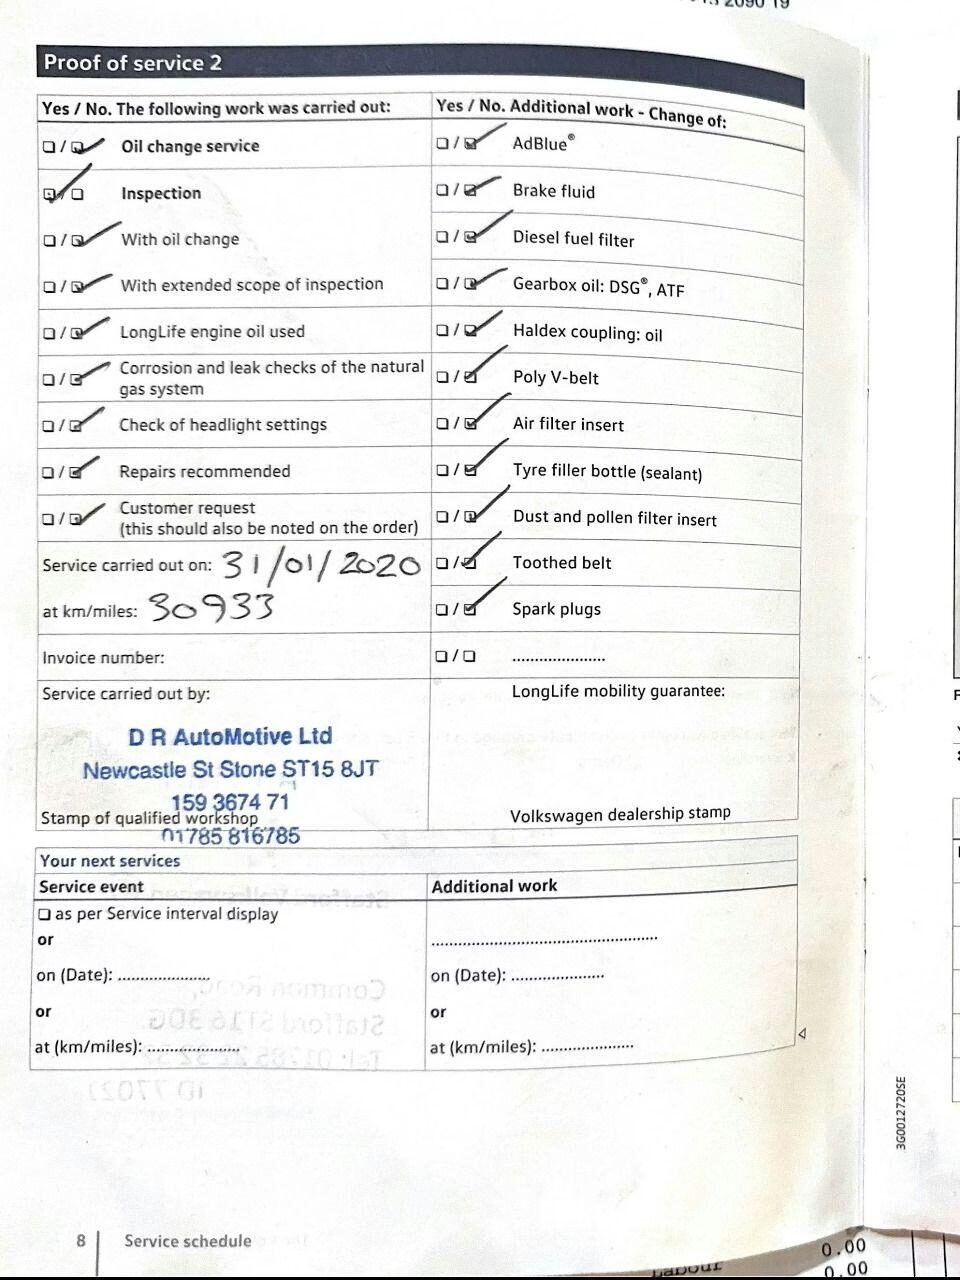 2090 19
Proof of service 2
Yes / No. The following work was carried out:
Oil change service
Inspection
With oil change
With extended scope of inspection
LongLife engine oil used
Corrosion and leak checks of the natural
gas system
Check of headlight settings
Repairs recommended
Customer request
(this should also be noted on the order)
Service carried out on: 31/01/2020
at km/miles: 30933
Invoice number:
Service carried out by:
D R AutoMotive Ltd
Newcastle St Stone ST15 8JT
159 3674 71
Stamp of qualified workshop
01785 816785
Yes / No. Additional work - Change of:
AdBlue®
Brake fluid
Diesel fuel filter
Gearbox oil: DSG®, ATF
Haldex coupling: oil
Poly V-belt
Air filter insert
Tyre filler bottle (sealant)
Dust and pollen filter insert
Toothed belt
Spark plugs
.....................
LongLife mobility guarantee:
Volkswagen dealership stamp
Your next services
Service event
as per Service interval display
or
on (Date): .....................
or
at (km/miles): .....................
Additional work
.....................................................
on (Date): .....................
or
at (km/miles): .....................
3G0012720SE
8 Service schedule
Labour
0.00
0.00